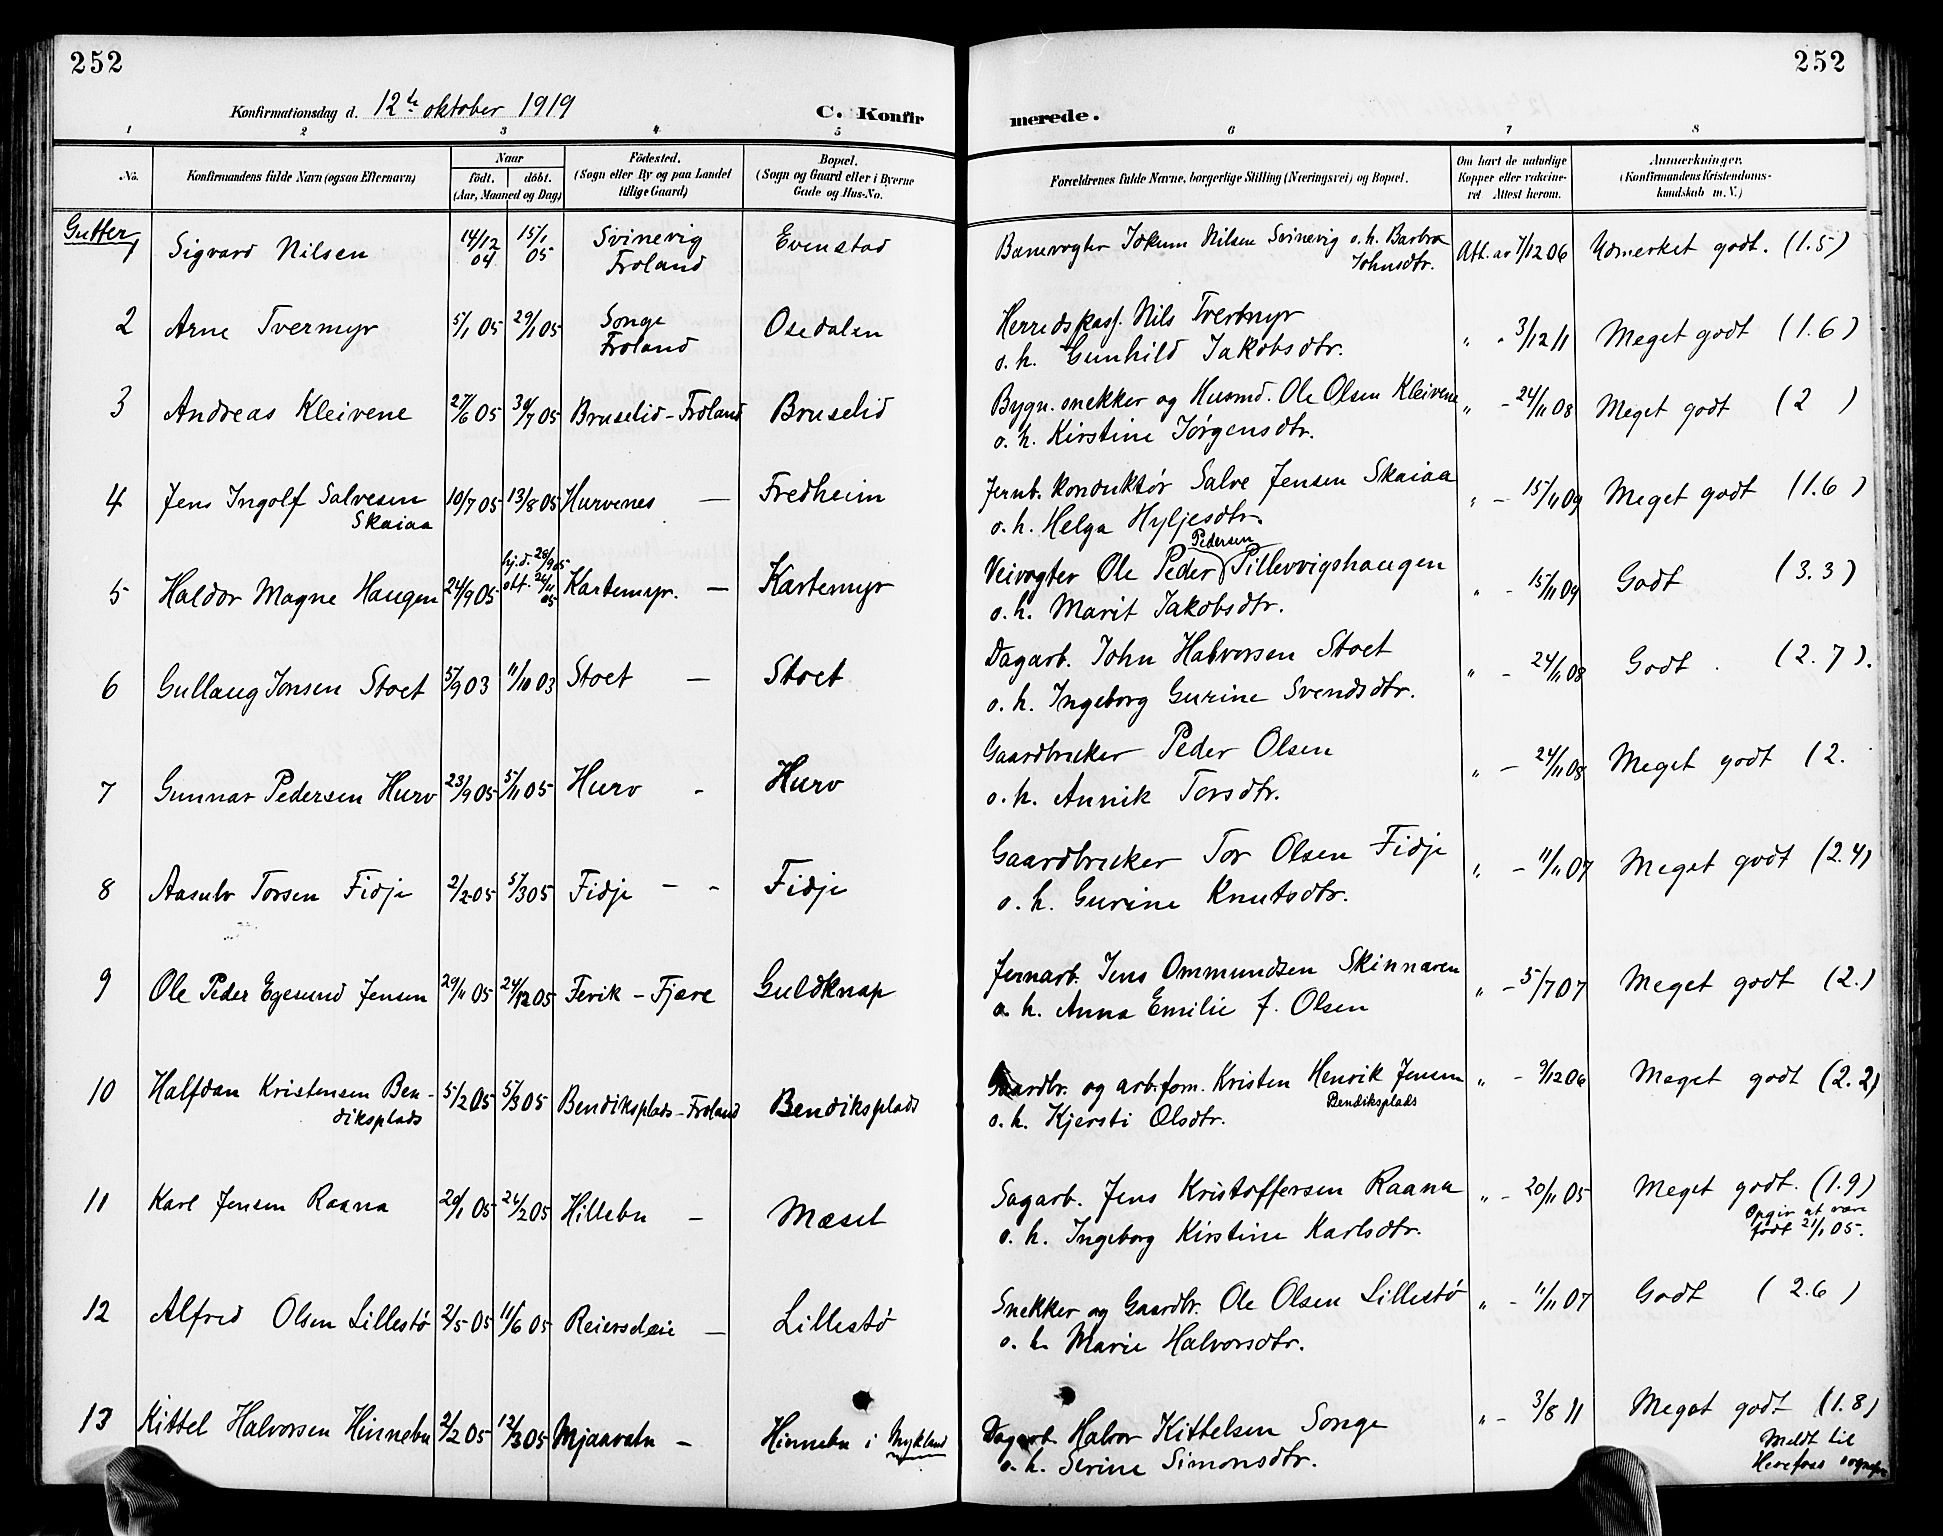 252
252
Konfirmationsdag d. 12te oktober 1919
C. Konfir
merede.
1 2 3 4 5 6 7 8
No.
Konfirmandens fulde Navn (ogsaa Efternavn)
Naar
födt. döbt.
(Aar, Maaned og Dag)
Födested.
(Sogn eller By og paa Landet
tillige Gaard)
Bopæl.
(Sogn og Gaard eller i Byerne
Gade og Hus-No.
Forældrenes fulde Navne, borgerlige Stilling (Næringsvei) og Bopæl.
Om havt de naturlige
Kopper eller vakcine-
ret Attest herom.
Anmerkninger.
(Konfirmandens Kristendoms-
kundskab m. V.)
Gutter
1 Sigvard Nilsen 14/12 04 15/1 05 Svinevig Froland Evenstad Banevogter Jokum Nilsen Svinevig o. h. Barbro Johnsdtr. Att. av 7/12 06 Udmerket godt. (1.5)
2 Arne Tvermyr 5/1 05 29/1 05 Songe Froland Osedalen Herredskass. Nils Tvermyr
o. h. Gunhild Jakobsdtr. " " 3/12 11 Meget godt (1.6)
3 Andreas Kleivene 27/6 05 30/7 05 Bruselid - Froland Bruselid Bygn. snekker og Husmd. Ole Olsen Kleivene
o. h. Kirstine Jørgensdtr. " - 24/11 08 Meget godt (2 )
4 Jens Ingolf Salvesen Skaiaa 10/7 05 13/8 05 Hurvenes — Fredheim Jernb. konduktør Salve Jensen Skaiaa
o. h. Helga Hyljesdtr. " - 15/11 09 Meget godt (1.6)
5 Haldor Magne Haugen 24/9 05 hj.d. 28/9 05 stf. 26/11 05 Kartemyr. — Kartemyr Veivogter Ole Peder Pedersen Pillevvigshaugen
o. h. Marit Jakobsdtr. " - 15/11 09 Godt (3.3)
6 Gullaug Jonsen Stoet 5/9 03 11/10 03 Stoet — Stoet Dagarb. John Halvorsen Stoet
o. h. Ingeborg Gurine Svendsdtr. " - 24/11 08 Godt . (2.7).
7 Gunnar Pedersen Hurv 23/9 05 5/11 05 Hurv - Hurv Gaardbruker Peder Olsen
o. h. Annik Torsdtr. " - 24/11 08 Meget godt (2.
8 Aasulv Torsen Fidje 2/2 05 5/3 05 Fidje - - Fidje Gaardbruker Tor Olsen Fidje
o. h. Gurine Knutsdtr. " - 11/11 07 Meget godt (2.4)
9 Ole Peder Egesund Jensen 29/11 05 24/12 05 Fevik - Fjære Guldknap Jernarb. Jens Ommundsen Skinnaren
o. h. Anna Emilie f. Olsen " - 5/7 07 Meget godt (2.)
10 Halfdan Kristensen Ben-
diksplads 5/2 05 5/3 05 Bendiksplads - Froland Bendiksplads Gaardbr. og arb.form. Kristen Henrik Jensen Bendiksplads
o. h. Kjersti Olsdtr. " - 9/12 06 Meget godt (2.2)
11 Karl Jensen Raana 20/1 05 26/2 05 Hillebu — Mæsel Sagarb. Jens Kristoffersen Raana
o. h. Ingeborg Kirstine Karlsdtr. " - 20/11 05 Meget godt. (1.9)
Opgir at være
født 21/1 05.
12 Alfred Olsen Lillestø 2/5 05 11/6 05 Reiersdæie — Lillestø Snekker og Gaardbr. Ole Olsen Lillestø
o. h. Marie Halvorsdtr. " - 11/11 07 Godt (2.6)
13 Kittel Halvorsen Hinnebu 2/2 05 12/3 05 Mjaavatn — Hinnebu i Mykland Dagarb. Halvor Kittelsen Songe
o. h. Serine Simonsdtr. " - 3/8 11 Meget godt (1.8)
Meldt til
Herefoss sognepr